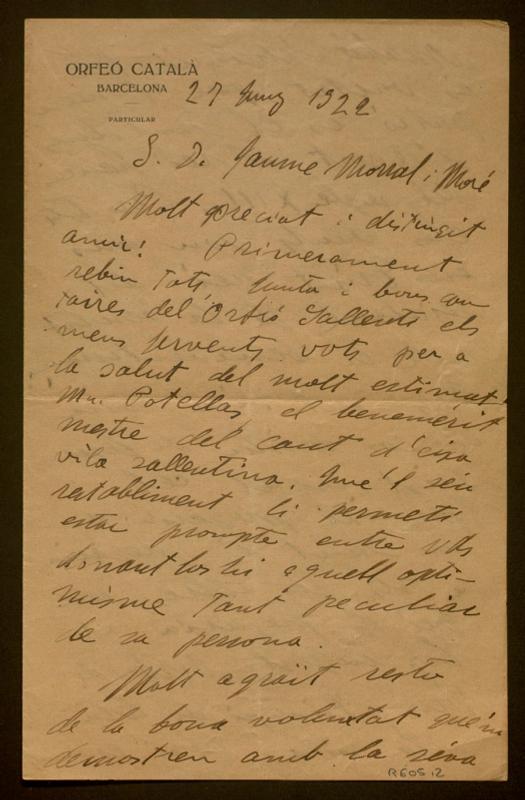 ORFEÓ CATALÀ
BARCELONA
PARTICULAR
27 Juny 1922
S. D. Jaume Morral i Moré
Molt preciat i distingit
amic! Primerament
rebin Tots, Junta i bons can
taires del Orfeó Sallentí els
meus fervents vots per a
la salut del molt estimat
Mn. Potellas, el benemérit
mestre del cant d'eixa
vila sallentina. Que'l séu
restabliment li permeti
estar prompte entre Vds
donant los hi aquell opti-
misme Tant peculiar
de sa persona.
Molt agraït resto
de la bona voluntat que'm
demostren amb la séva
R605.12